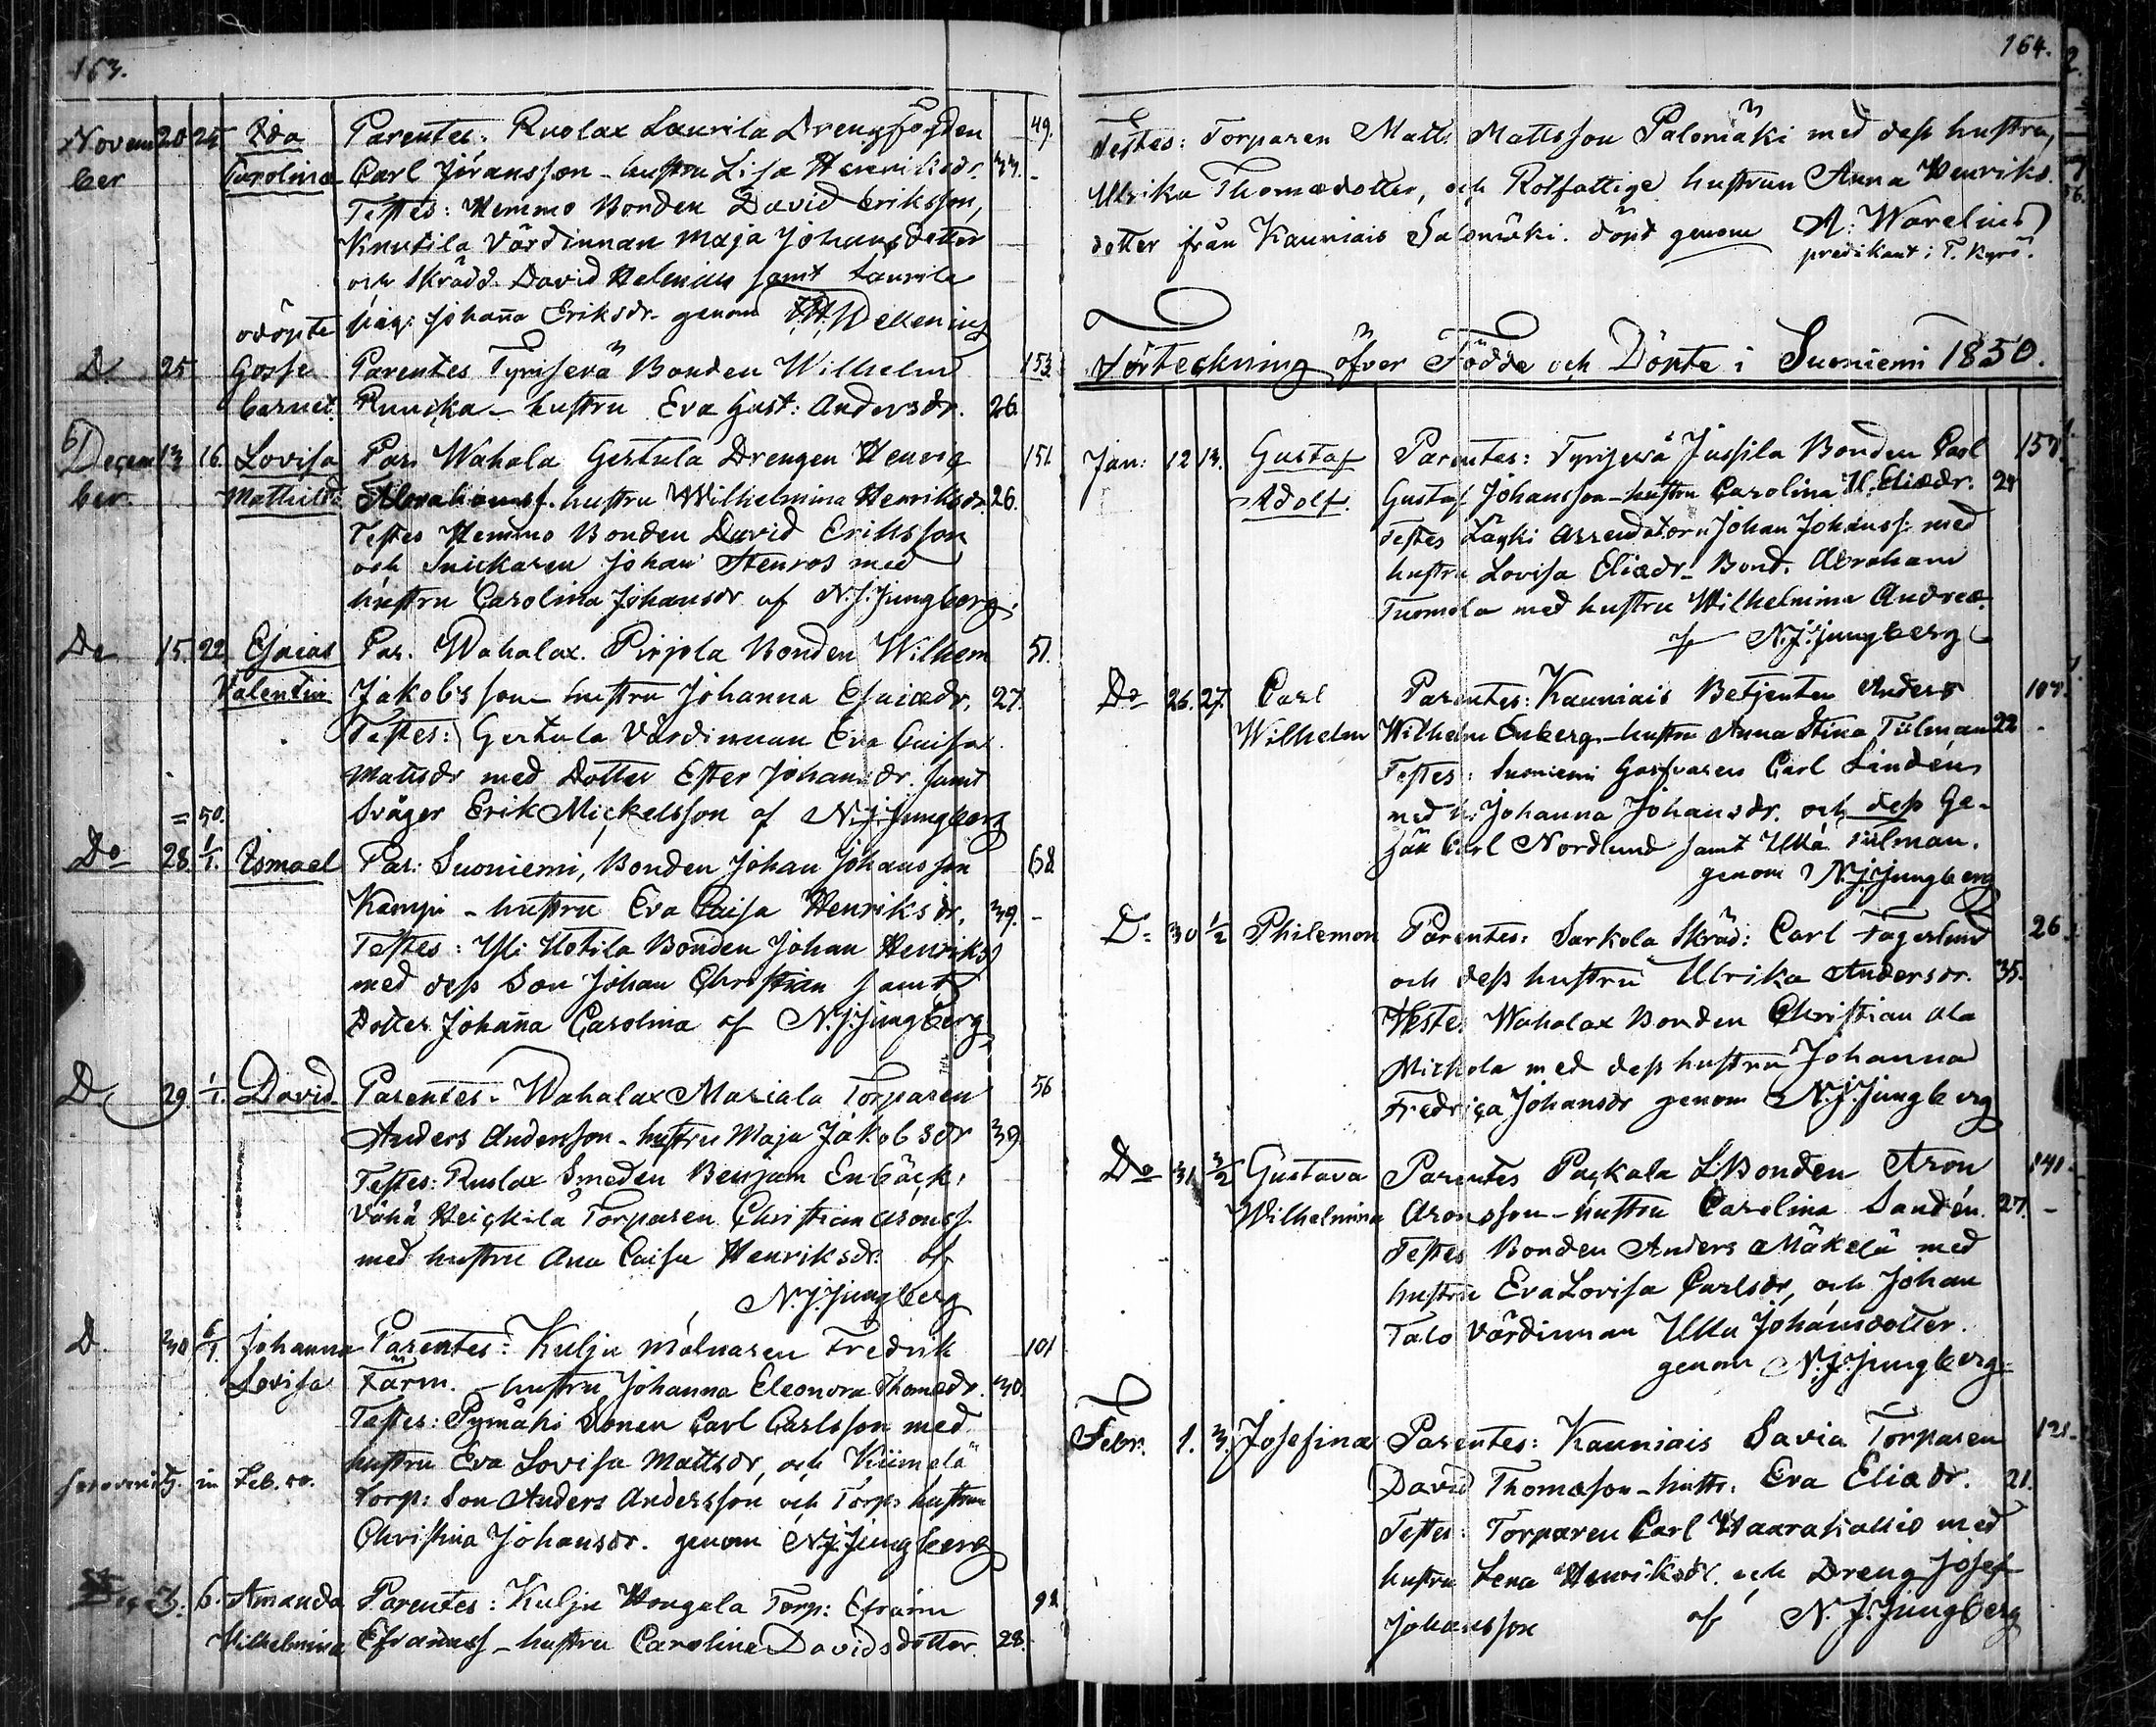 163.
Novem 20 25 Ida Parentes: Ruolax Laurila Drengfogden 49.
ber Carolina Carl Jöransson - hustru Lisa Henriksdr. 34.
Testes: Hemmo Bonden David Eriksson,
Knutila Värdinnan Maja Johansdotter
och Skrädd. David Helenius samt Laurila
pig: Johaña Eriksdr. genom
D. 25. odöpte Gosse Parentes Tyrisevä Bonden Wilhelm 153
barnet. Ruuska - hustru Eva Gust: Andersdr. 26.
Decem 13 16. Lovisa Par. Wahala Gertula Drengen Henrig 151
ber. Mathilda Abrahamsf. hustru Wilhelmina Henriksdr. 26.
Testes Hemmo Bonden David Eriksson
och Snickaren Johan Stenros med
hustru Carolina Johansdr af N.J.Jungberg.
Do 15. 22. Esaias Par. Wahalax. Pirjola Bonden Wilhem 51.
Valentin Jakobsson - hustru Johanna Esaiædr. 27.
Testes: Gertula Värdinnan Eva Caisa
Mattsdr med Dotter Ester Johansdr. samt
Svåger Erik Mickelsson af N.J.Jungberg
= 50.
Do 28. 1/1. Ismael Par: Suoniemi, Bonden Johan Johansson 68.
Kamppi - hustru Eva Caisa Henriksdr. 39.
Testes: Yli Uotila Bonden Johan Henriks
med dess Son Johan Christian samt
Dotter Johaña Carolina af N.J.Jungberg
D. 29. 1/1. David Parentes. Wahalax Mariala Torparen 56
Anders Andersson - hustru Maja Jakobsdr 39
Testes: Ruolax Smeden Benjam Enbäck,
Vähä Heickilä Torparen Christian Aronss
med hustru Ana Caisa Henriksdr. af
N.J.Jungberg
D. 30 6/1. Johanna Parentes: Kulju mölnaren Fredrik 101
Lovisa Färm. - hustru Johanna Eleonora Thomædr. 30.
Testes: Pymäki Sonen Carl Carlsson med
hustru Eva Lovisa Mattsdr, och Kiimelä
in Feb. 50. Torp: Son Anders Andersson och Torp: hustrun
Christina Johansdr. genom N.J.Jungberg
6. Amanda Parentes: Kulju Hongola Torp: Efraim 98.
Wilhelmina Efraimss - hustru Carolina Davidsdotter. 28.
164.
Testes: Torparen Matts Mattsson Palomäki med dess hustru,
Ulrika Thomædotter, och Rotfattige hustrun Anna Henriks-
dotter från Kauniais Salomäki. döpt genom A: Warelius
predikant i T. Kyrö.
Förteckning öfver Födde och Döpte i Suoniemi 1850.
Jan: 12 13. Gustaf Parentes: Tyrisevä Jussila Bonden Carl 157.
Adolf. Gustaf Johansson - hustru Carolina U. Eliædr. 24
Testes Läyki Arrendatorn Johan Johanss: med
hustru Lovisa Eliædr - Bond. Abraham
Tuomola med hustru Wilhelmina Andreæ.
N.J.Jungberg
Do 26. 27. Carl Parentes: Kauniais Betjenten Anders 107.
Wilhelm Wilhelm Enberg - hustru Anna Stina Tiilman 22
Testes: Suoniemi Garfvaren Carl Lindén
med h. Johanna Johansdr. och dess Ge-
säll Carl Nordlund samt Ulla Tiilman.
genom N.J.Jungberg
D= 30 1/2 Philemon Parentes: Sarkola Skräd: Carl Fagerlund 26
och dess hustru Ulrika Andersdr. 35.
Testes Wahalax Bonden Christian Ala
Mickola med dess hustru Johanna
Fredrica Johansdr genom N.J.Jungberg
Do 31. 3/2 Gustava Parentes Packala L:Bonden Aron 141
Wilhelmina Aronsson - hustru Carolina Sandén. 27. -
Testes Bonden Anders Mäkelä med
hustru Eva Lovisa Carlsdr, och Johan
Talo Värdinnan Ulla Johansdotter.
genom N.J.Jungberg
Febr. 1. 3. Josefina Parentes: Kauniais Savia Torparen 121.
David Thomæson - hustr. Eva Eliædr. 21.
Testes: Torparen Carl Haarakallio med
hustru Lena Henriksdr. och Dreng Josef
Johansson af N.J.Jungberg